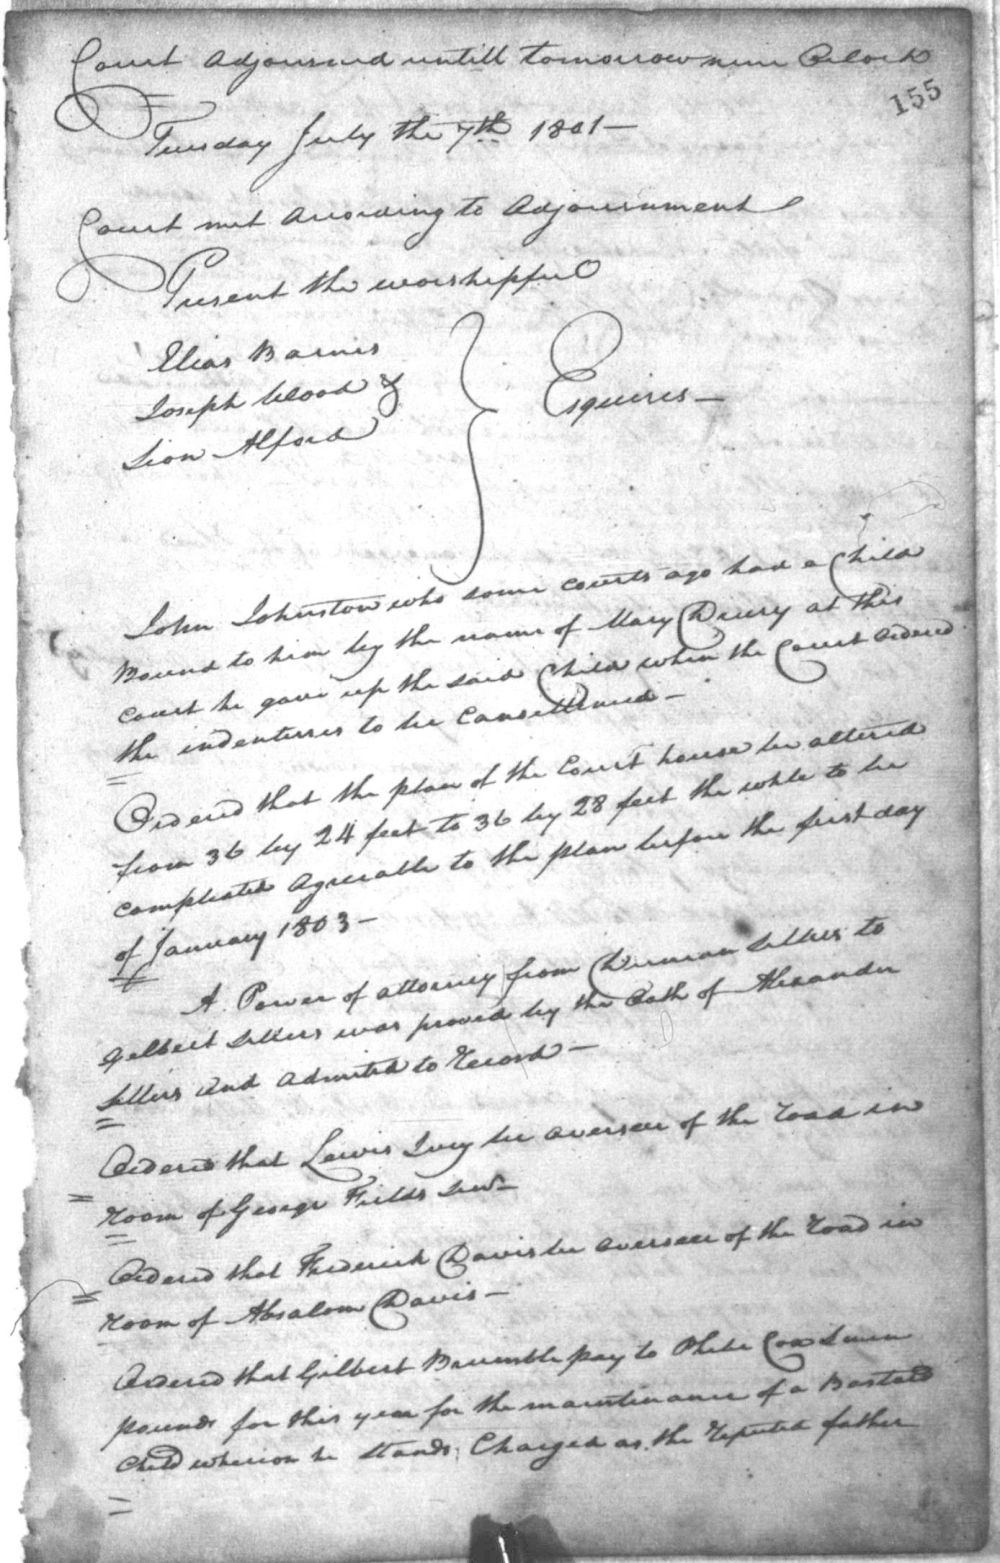 Court Adjourned untill tomorrow nine Oclock
155
Tuesday July the 7th 1801 —
Court met According to Adjournment
Present the worshipful
Elias Barnes
Joseph Wood &
Sion Alford
Esquires —
John Johnston who some courts ago had a Child
Bound to him by the name of Mary Drury at this
Court he gave up the said Child when the Court Ordered
the indenturs to be —
Ordered that the plan of the Court house be altered
from 36 by 24 feet to 36 by 28 feet the whole to be
compleated Agreeable to the plan before the first day
of January 1803 —
A. Power of attorney from to
Gilbert was proved by the Oath of Alexander
And Admited to Record —
Ordered that Lewis Ivey be overseer of the road in
room of George Fields —
Ordered that Frederick Davis be overseer of the road in
room of Absalom Davis —
Ordered that Gilbert pay to Phebe Cox
pounds for this year for the maintinance of a Bastard
Child whereon he stands Charged as the reputed father